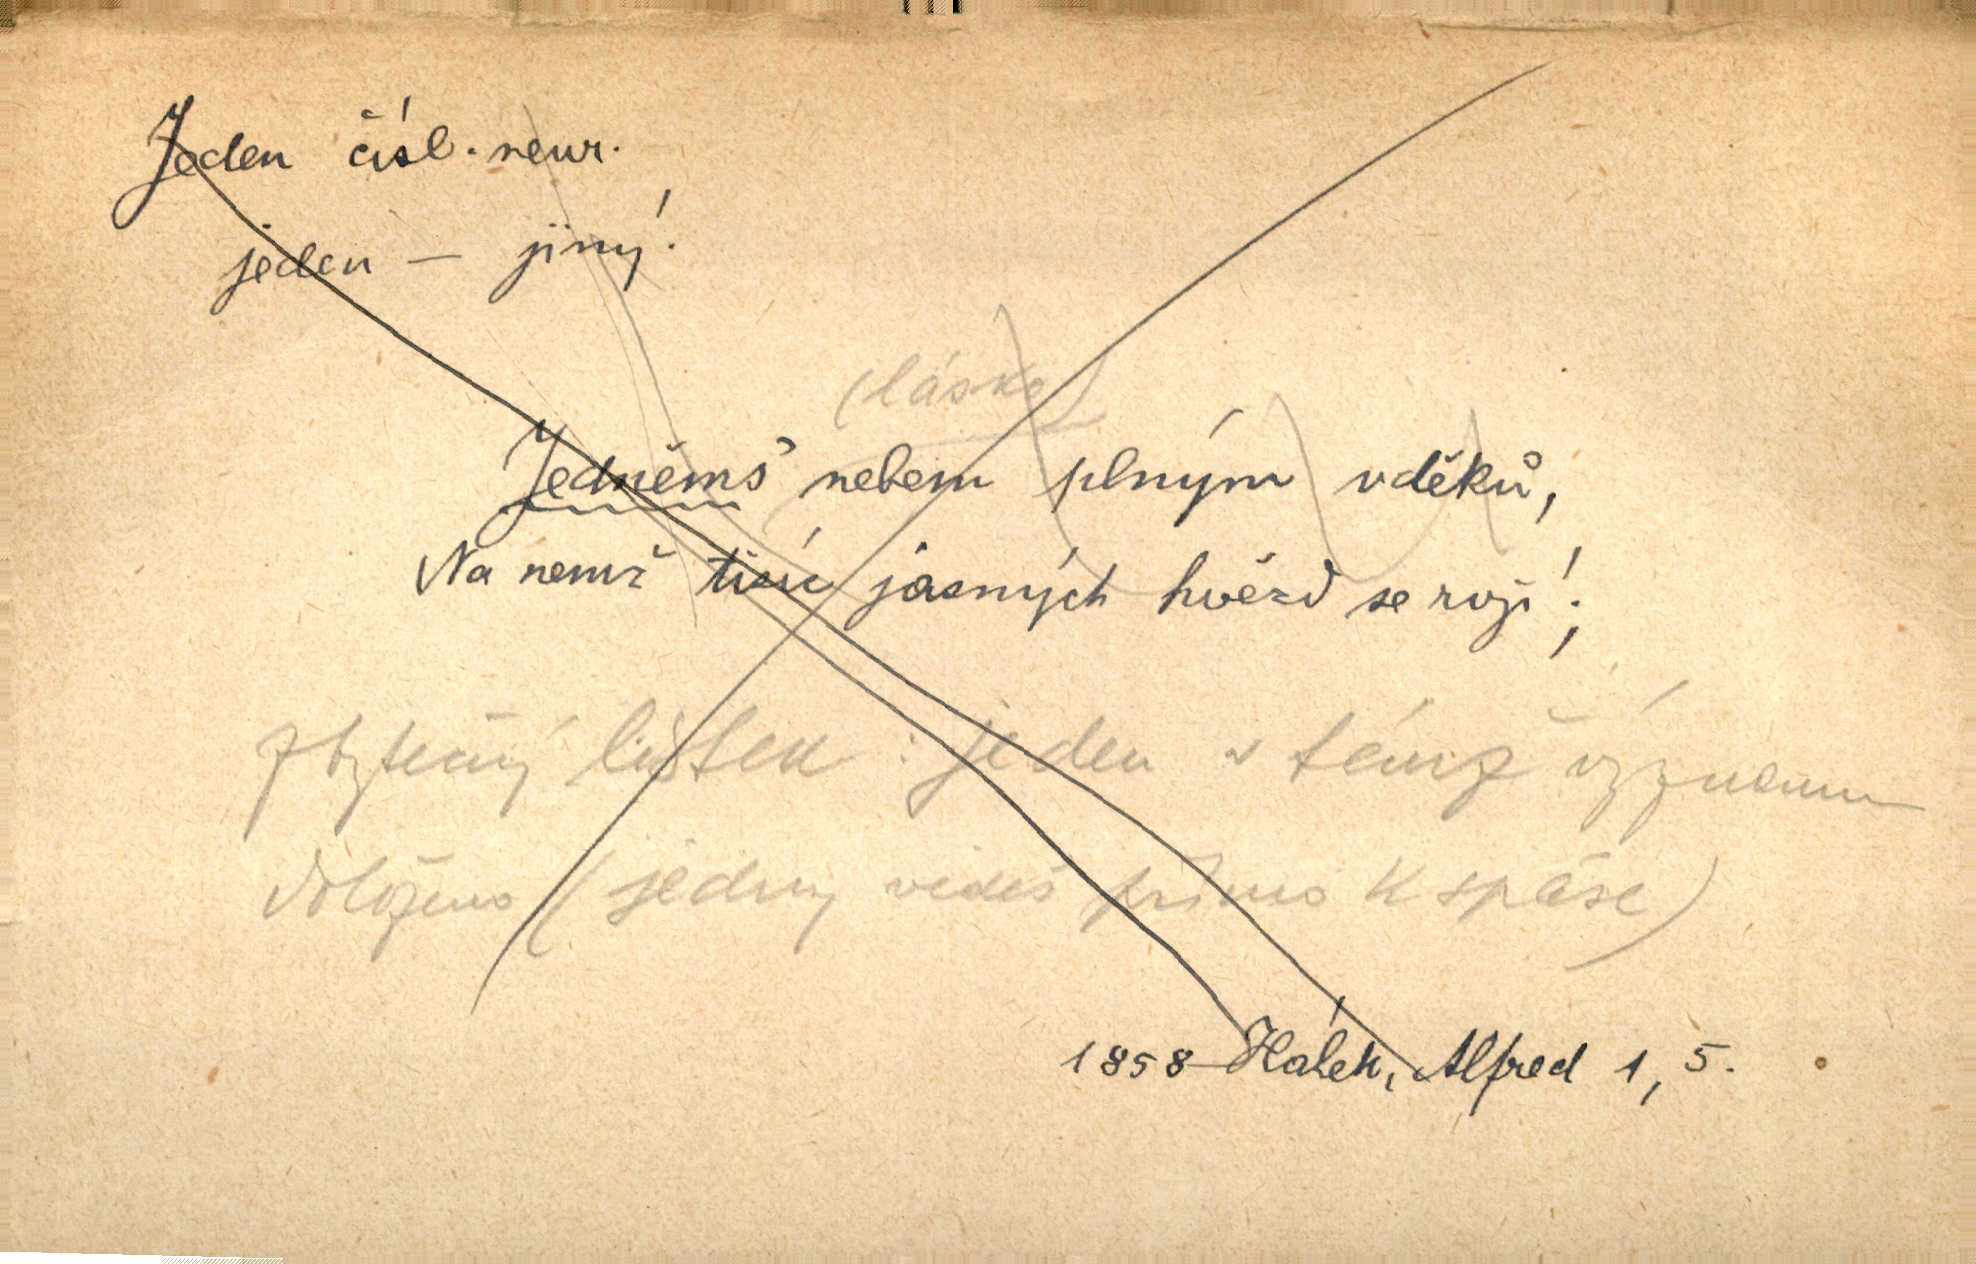 Jeden čísl. neur.
jeden — jiný!
(láska)
Jedněms' nebem plným vděků,
Na nemž tisíc jasných hvězd se rojí;
zbytečný lístek: jeden v témž významu
doloženo (jedny vedeš přímo k spáse)
1858 Hálek, Alfred 1, 5.